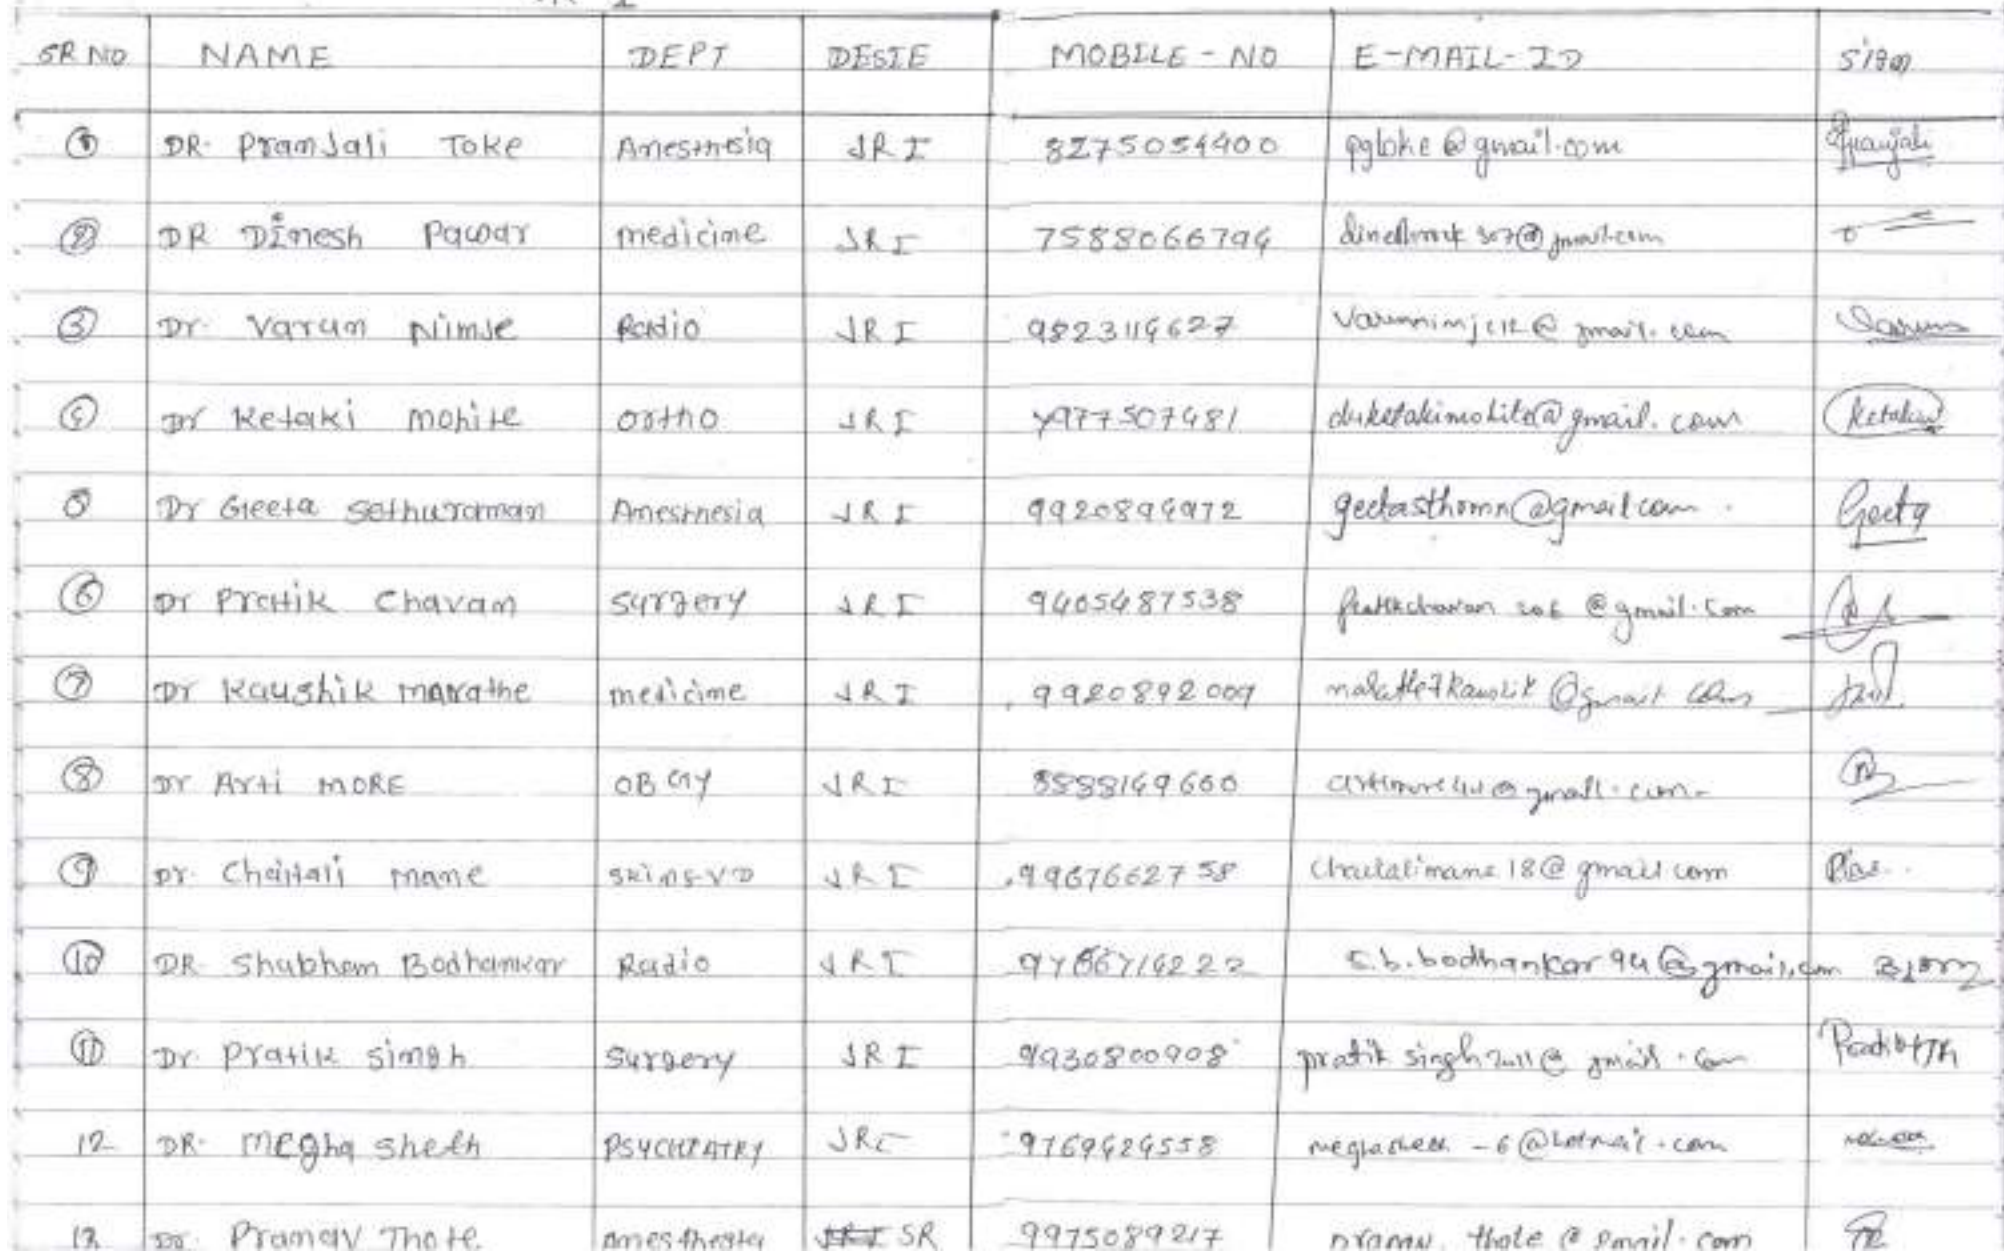 SR NO NAME DEPT DESIE MOBILE-NO E-MAIL-ID sign
1 DR. Pranjali Toke Anesthesia JR I 8275054400 @gmail.com Pranjali
2 DR Dinesh Pawar medicine JR I 7588066794 @gmail.com
3 Dr. Varun Nimje Radio JR I 9823114627 @gmail.com Varun
4 Dr Ketaki Mohite ortho JR I drketakimohite@gmail.com Ketaki
5 Dr Geeta Sethuraman Anesthesia JR I 9920894972 geetasthomn@gmail.com Geeta
6 Dr Pratik Chavan Surgery JR I 9405487538 @gmail.com
7 Dr Kaushik Marathe medicine JR I 9920892009 @gmail.com
8 Dr Arti MORE OBGY JR I @gmail.com
9 Dr. Chaitali Mane Skin & VD JR I 9967662758 chaitalimane18@gmail.com
10 DR. Shubham Bodhankar Radio JR I s.b.bodhankar94@gmail.com
11 Dr. Pratik Singh Surgery JR I 9930800908 pratiksingh2011@gmail.com
12 DR. Megha Sheth PSYCHIATRY JR I 9769624558 @hotmail.com
13 Dr. Pranav Thote Anesthesia SR 9975089217 pranav.thote@gmail.com